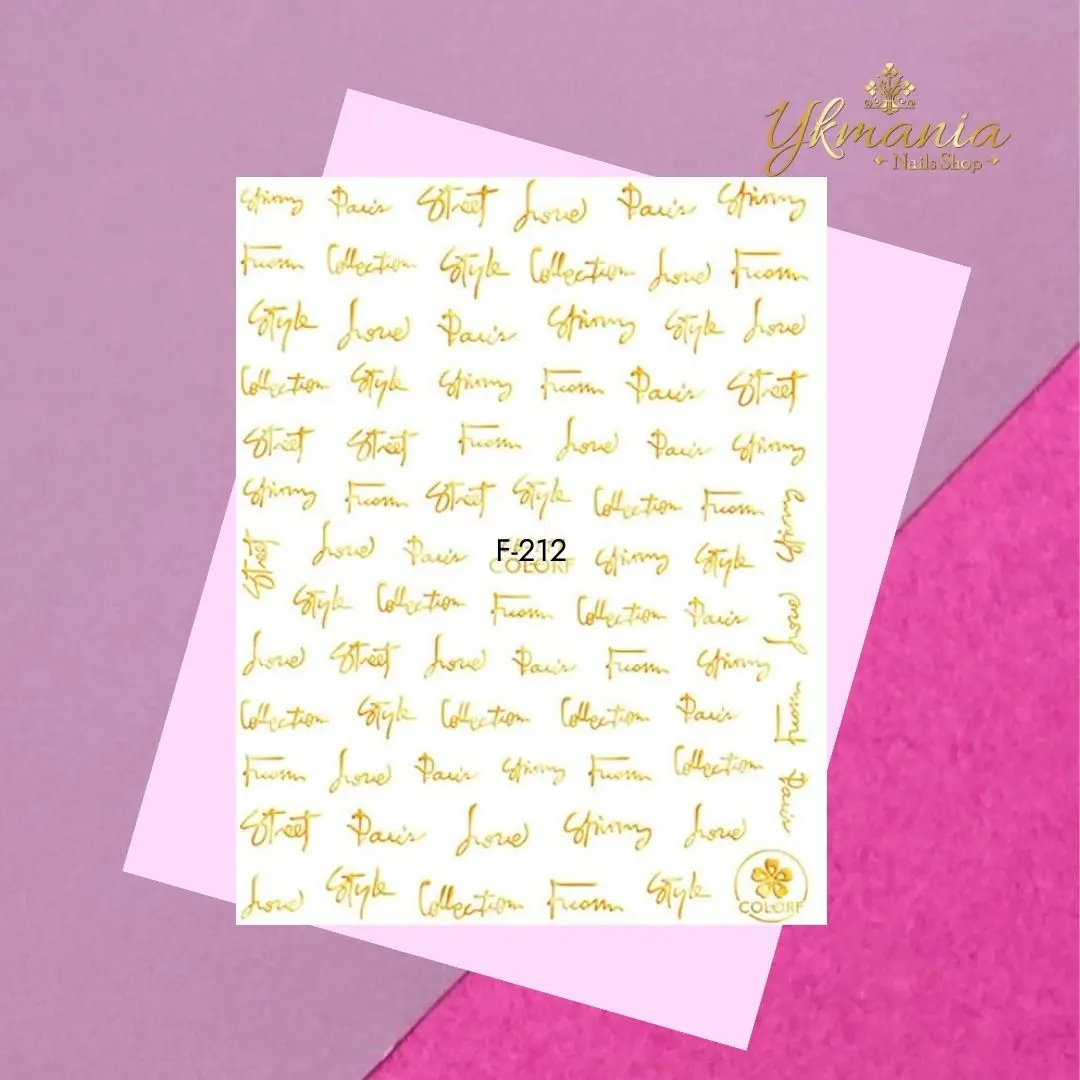 Ykmania
Nails Shop
Spinny Paris Street Love Paris Spinny
Collection Style Collection Love
Style Love Paris Spinny Style Love
Collection Style Spinny Paris Street
Street Street Love Paris Spinny
Spinny Street Style Collection Spinny
Street Love Paris F-212 Spinny Style
COLORF
Style Collection Collection Paris Love
Love Street Love Paris Spinny
Collection Style Collection Collection Paris
Love Paris Spinny Collection Paris
Street Paris Love Spinny Love
Love Style Collection Style COLORF